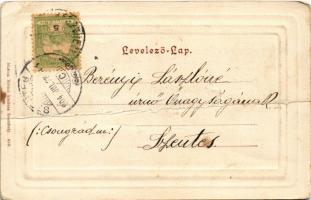 Levelező-Lap.
Berényi Lászlóné
úrnő Őnagyságának
(:Csongrád m:)
Szentes